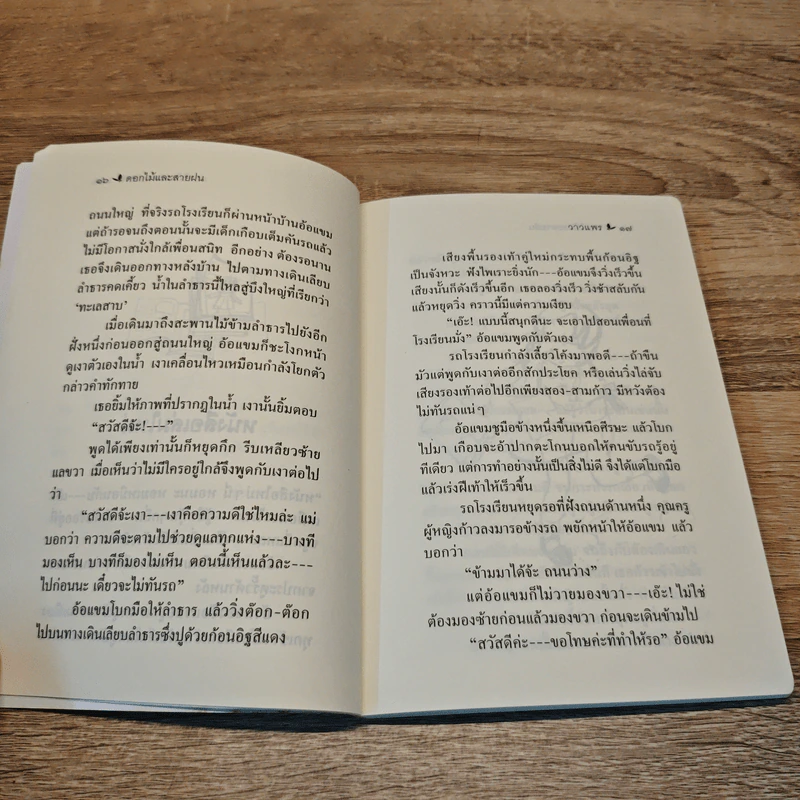 ๑๖ ดอกไม้และสายฝน
ถนนใหญ่ ที่จริงรถโรงเรียนก็ผ่านหน้าบ้านอ้อแขม
แต่ถ้ารอจนถึงตอนนั้นจะมีเด็กเกือบเต็มคันรถแล้ว
ไม่มีโอกาสนั่งใกล้เพื่อนสนิท อีกอย่าง ต้องรอนาน
เธอจึงเดินออกทางหลังบ้าน ไปตามทางเดินเลียบ
ลำธารคดเคี้ยว น้ำในลำธารนี้ไหลสู่บึงใหญ่ที่เรียกว่า
‘ทะเลสาบ’
เมื่อเดินมาถึงสะพานไม้ข้ามลำธารไปยังอีก
ฝั่งหนึ่งก่อนออกสู่ถนนใหญ่ อ้อแขมก็ชะโงกหน้า
ดูเงาตัวเองในน้ำ เงาเคลื่อนไหวเหมือนกำลังโยกตัว
กล่าวคำทักทาย
เธอยิ้มให้ภาพที่ปรากฏในน้ำ เงานั้นยิ้มตอบ
“สวัสดีจ้ะ!---”
พูดได้เพียงเท่านั้นก็หยุดกึก รีบเหลียวซ้าย
แลขวา เมื่อเห็นว่าไม่มีใครอยู่ใกล้จึงพูดกับเงาต่อไป
ว่า
“สวัสดีจ้ะเงา---เงาคือความดีใช่ไหมล่ะ แม่
บอกว่า ความดีจะตามไปช่วยดูแลทุกแห่ง---บางที
มองเห็น บางทีก็มองไม่เห็น ตอนนี้เห็นแล้วละ---
ไปก่อนนะ เดี๋ยวจะไม่ทันรถ”
อ้อแขมโบกมือให้ลำธาร แล้ววิ่งต๊อก-ต๊อก
ไปบนทางเดินเลียบลำธารซึ่งปูด้วยก้อนอิฐสีแดง
วาวแพร ๑๗
เสียงพื้นรองเท้าคู่ใหม่กระทบพื้นก้อนอิฐ
เป็นจังหวะ ฟังไพเราะยิ่งนัก---อ้อแขมจึงวิ่งเร็วขึ้น
เสียงนั้นก็ดังเร็วขึ้นอีก เธอลองวิ่งเร็ว วิ่งช้าสลับกัน
แล้วหยุดวิ่ง คราวนี้มีแต่ความเงียบ
“เอ๊ะ! แบบนี้สนุกดีนะ จะเอาไปสอนเพื่อนที่
โรงเรียนมั่ง” อ้อแขมพูดกับตัวเอง
รถโรงเรียนกำลังเลี้ยวโค้งมาพอดี---ถ้าขืน
มัวแต่พูดกับเงาต่ออีกสักประโยค หรือเล่นวิ่งไล่จับ
เสียงรองเท้าต่อไปอีกเพียงสอง-สามก้าว มีหวังต้อง
ไม่ทันรถแน่ๆ
อ้อแขมชูมือข้างหนึ่งขึ้นเหนือศีรษะ แล้วโบก
ไปมา เกือบจะอ้าปากตะโกนบอกให้คนขับรถรู้อยู่
ทีเดียว แต่การทำอย่างนั้นเป็นสิ่งไม่ดี จึงได้แต่โบกมือ
แล้วเร่งฝีเท้าให้เร็วขึ้น
รถโรงเรียนหยุดรอที่ฝั่งถนนด้านหนึ่ง คุณครู
ผู้หญิงก้าวลงมารอข้างรถ พยักหน้าให้อ้อแขม แล้ว
บอกว่า
“ข้ามมาได้จ้ะ ถนนว่าง”
แต่อ้อแขมก็ไม่วายมองขวา---เอ๊ะ! ไม่ใช่
ต้องมองซ้ายก่อนแล้วมองขวา ก่อนจะเดินข้ามไป
“สวัสดีค่ะ---ขอโทษค่ะที่ทำให้รอ” อ้อแขม